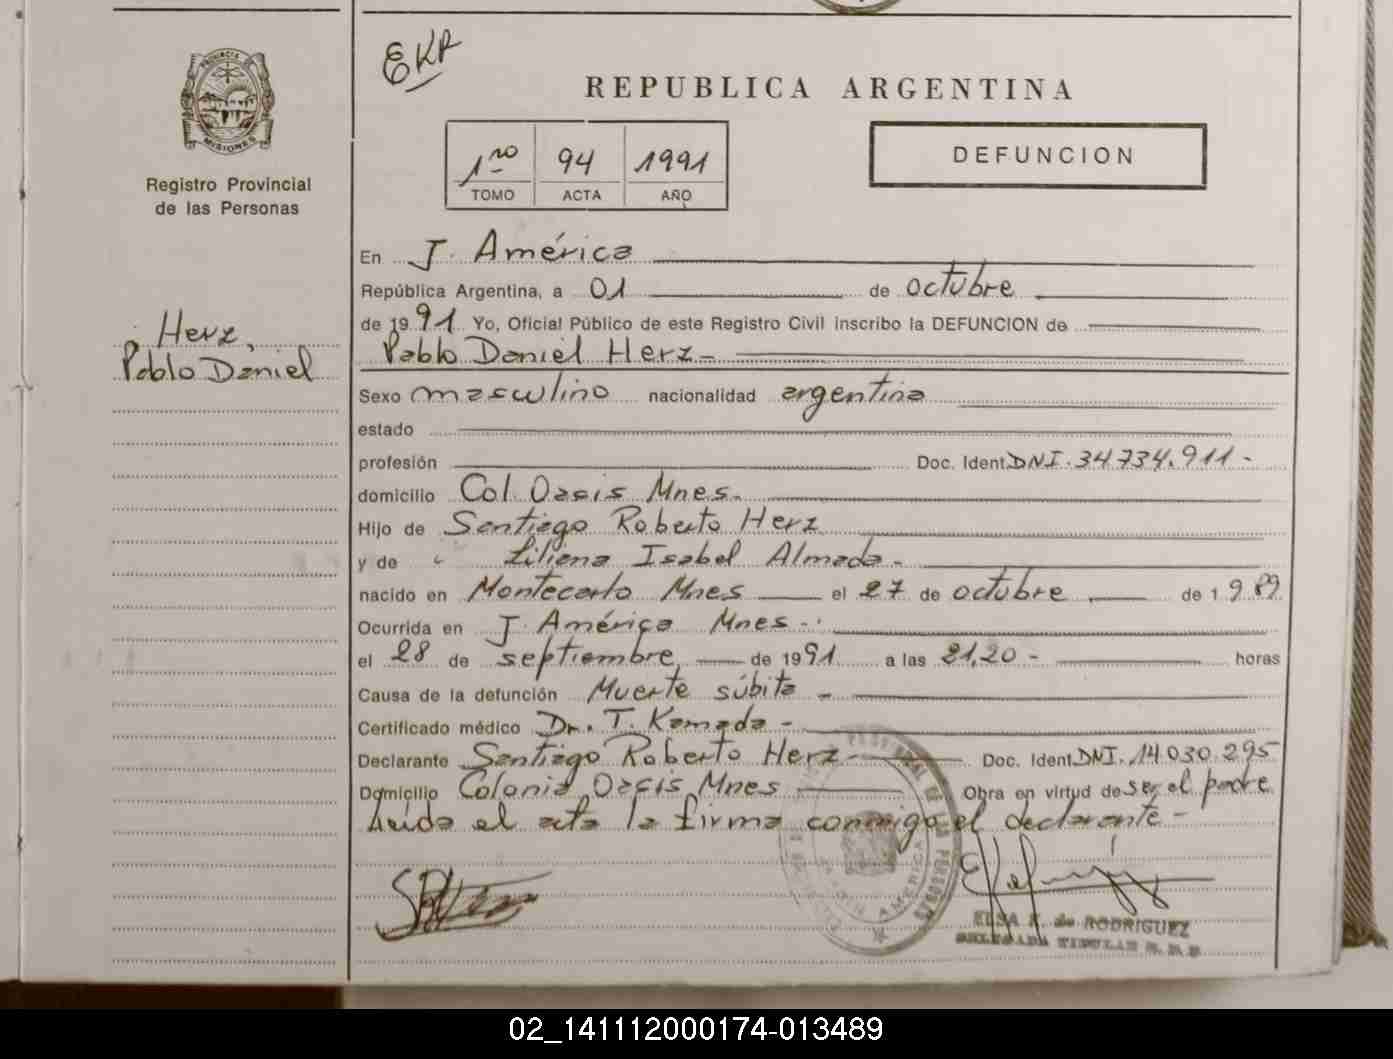 EKR
REPUBLICA ARGENTINA
PROVINCIA DE
MISIONES
Registro Provincial
de las Personas
1ro 94 1991
TOMO ACTA AÑO
DEFUNCION
En J. América
República Argentina, a 01 de octubre
de 1991 Yo, Oficial Público de este Registro Civil inscribo la DEFUNCION de
Pablo Daniel Herz -
Herz,
Pablo Daniel
Sexo masculino nacionalidad argentina
estado
profesión Doc. Ident. DNI. 34.734.911 -
domicilio Col. Oasis Mnes.
Hijo de Santiago Roberto Herz
y de Liliana Isabel Almada -
nacido en Montecarlo Mnes el 27 de octubre de 1.989
Ocurrida en J. América Mnes -
el 28 de septiembre de 1991 a las 21,20 - horas
Causa de la defunción Muerte súbita -
Certificado médico Dr. T. Kamada -
Declarante Santiago Roberto Herz - Doc. Ident. DNI. 14.030.295
Domicilio Colonia Oasis Mnes Obra en virtud de ser el padre
Leída el acta la firma conmigo el declarante -
ELSA K. de RODRIGUEZ
DELEGADA TITULAR
02_141112000174-013489